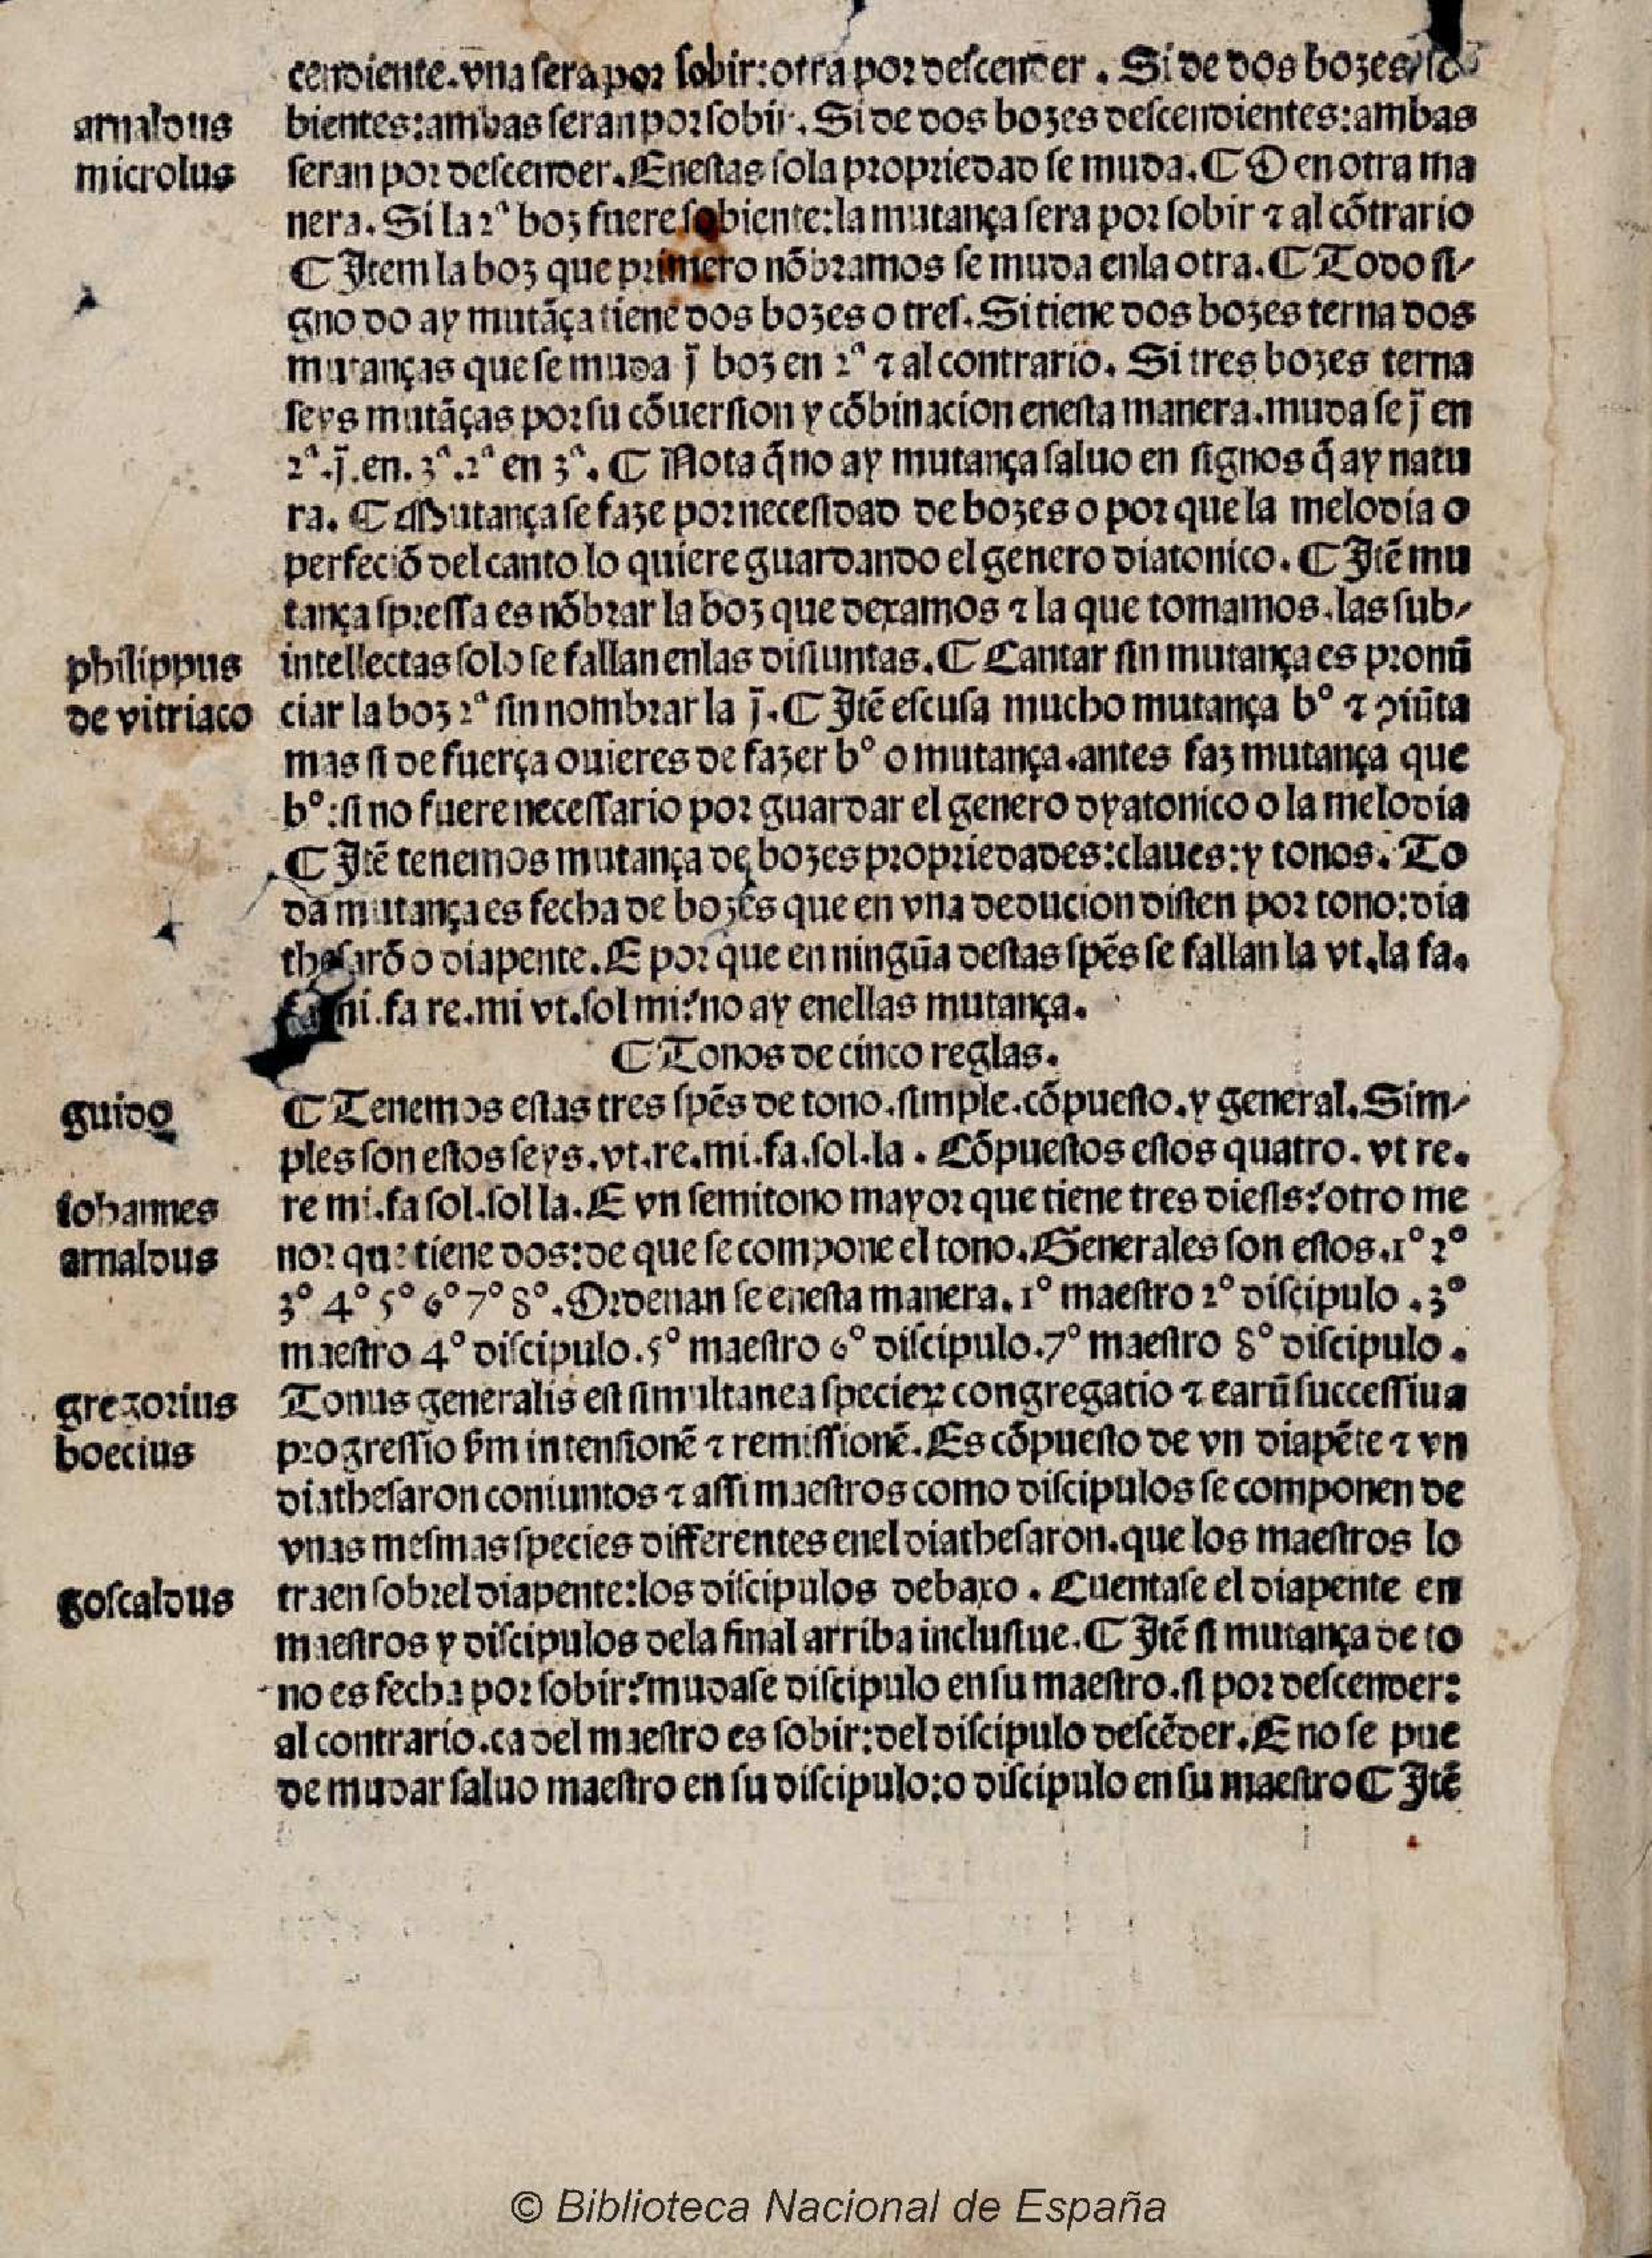 cendiente.vna sera por sobir:otra por descender . Si de dos bozes so
arnaldus
microlus
bientes:ambas seran por sobir. Si de dos bozes descendientes:ambas
seran por descender. Enestas sola propriedad se muda. ¶ O en otra ma
nera. Si la 2ª boz fuere sobiente:la mutança sera por sobir ⁊ al cõtrario
¶ Item la boz que primero nõbramos se muda enla otra. ¶ Todo si⸗
gno do ay mutãça tiene dos bozes o tres. Si tiene dos bozes terna dos
mutanças que se muda j̃ boz en 2ª ⁊ al contrario. Si tres bozes terna
seys mutãças por su cõuersion y cõbinacion enesta manera.muda se j̃ en
2ª.j̃.en.3ª.2ª en 3ª. ¶ Nota q̃ no ay mutança saluo en signos q̃ ay natu
ra. ¶ Mutança se faze por necessidad de bozes o por que la melodia o
perfeciõ del canto lo quiere guardando el genero diatonico. ¶ Itẽ mu
tança spressa es nõbrar la boz que dexamos ⁊ la que tomamos.las sub⸗
philippus
de vitriaco
intellectas solo se fallan enlas disiuntas. ¶ Cantar sin mutança es pronũ
ciar la boz 2ª sin nombrar la j̃. ¶ Itẽ escusa mucho mutança bº ⁊ ꝯiũta
mas si de fuerça ouieres de fazer bº o mutança.antes faz mutança que
bº:si no fuere necessario por guardar el genero dyatonico o la melodia
¶ Itẽ tenemos mutança de bozes propriedades:claues:y tonos. To
da mutança es fecha de bozes que en vna deducion disten por tono:dia
thesarõ o diapente. E por que en ningũa destas spẽs se fallan la vt.la fa.
fa mi.fa re.mi vt.sol mi:no ay enellas mutança.
¶ Tonos de cinco reglas.
guido
¶ Tenemos estas tres spẽs de tono.simple.cõpuesto.y general. Sim⸗
ples son estos seys.vt.re.mi.fa.sol.la . Cõpuestos estos quatro. vt re.
iohannes
arnaldus
re mi.fa sol.sol la. E vn semitono mayor que tiene tres diesis:otro me
nor que tiene dos:de que se compone el tono. Generales son estos.1º 2º
3º 4º 5º 6º 7º 8º. Ordenan se enesta manera. 1º maestro 2º discipulo . 3º
maestro 4º discipulo. 5º maestro 6º discipulo. 7º maestro 8º discipulo .
gregorius
boecius
Tonus generalis est simultanea specieꝝ congregatio ⁊ earũ successiua
progressio ẜm intensionẽ ⁊ remissionẽ. Es cõpuesto de vn diapẽte ⁊ vn
diathesaron coniuntos ⁊ assi maestros como discipulos se componen de
vnas mesmas species differentes enel diathesaron.que los maestros lo
goscaldus
traen sobrel diapente:los discipulos debaxo . Cuentase el diapente en
maestros y discipulos dela final arriba inclusiue. ¶ Itẽ si mutança de to
no es fecha por sobir:mudase discipulo en su maestro.si por descender:
al contrario.ca del maestro es sobir:del discipulo descẽder. E no se pue
de mudar saluo maestro en su discipulo:o discipulo en su maestro ¶ Itẽ
© Biblioteca Nacional de España